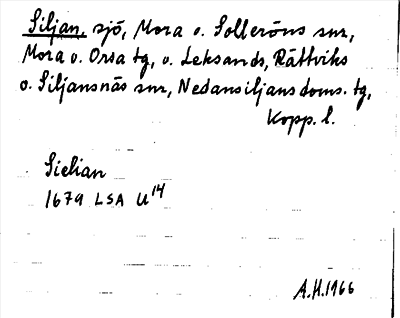 Siljan, sjö, Mora o. Solleröns snr,
Mora o. Orsa tg, o. Leksands, Rättviks
o. Siljansnäs snr, Nedansiljans doms. tg,
Kopp. l.
Sielian
1679 LSA U14
A.H. 1966